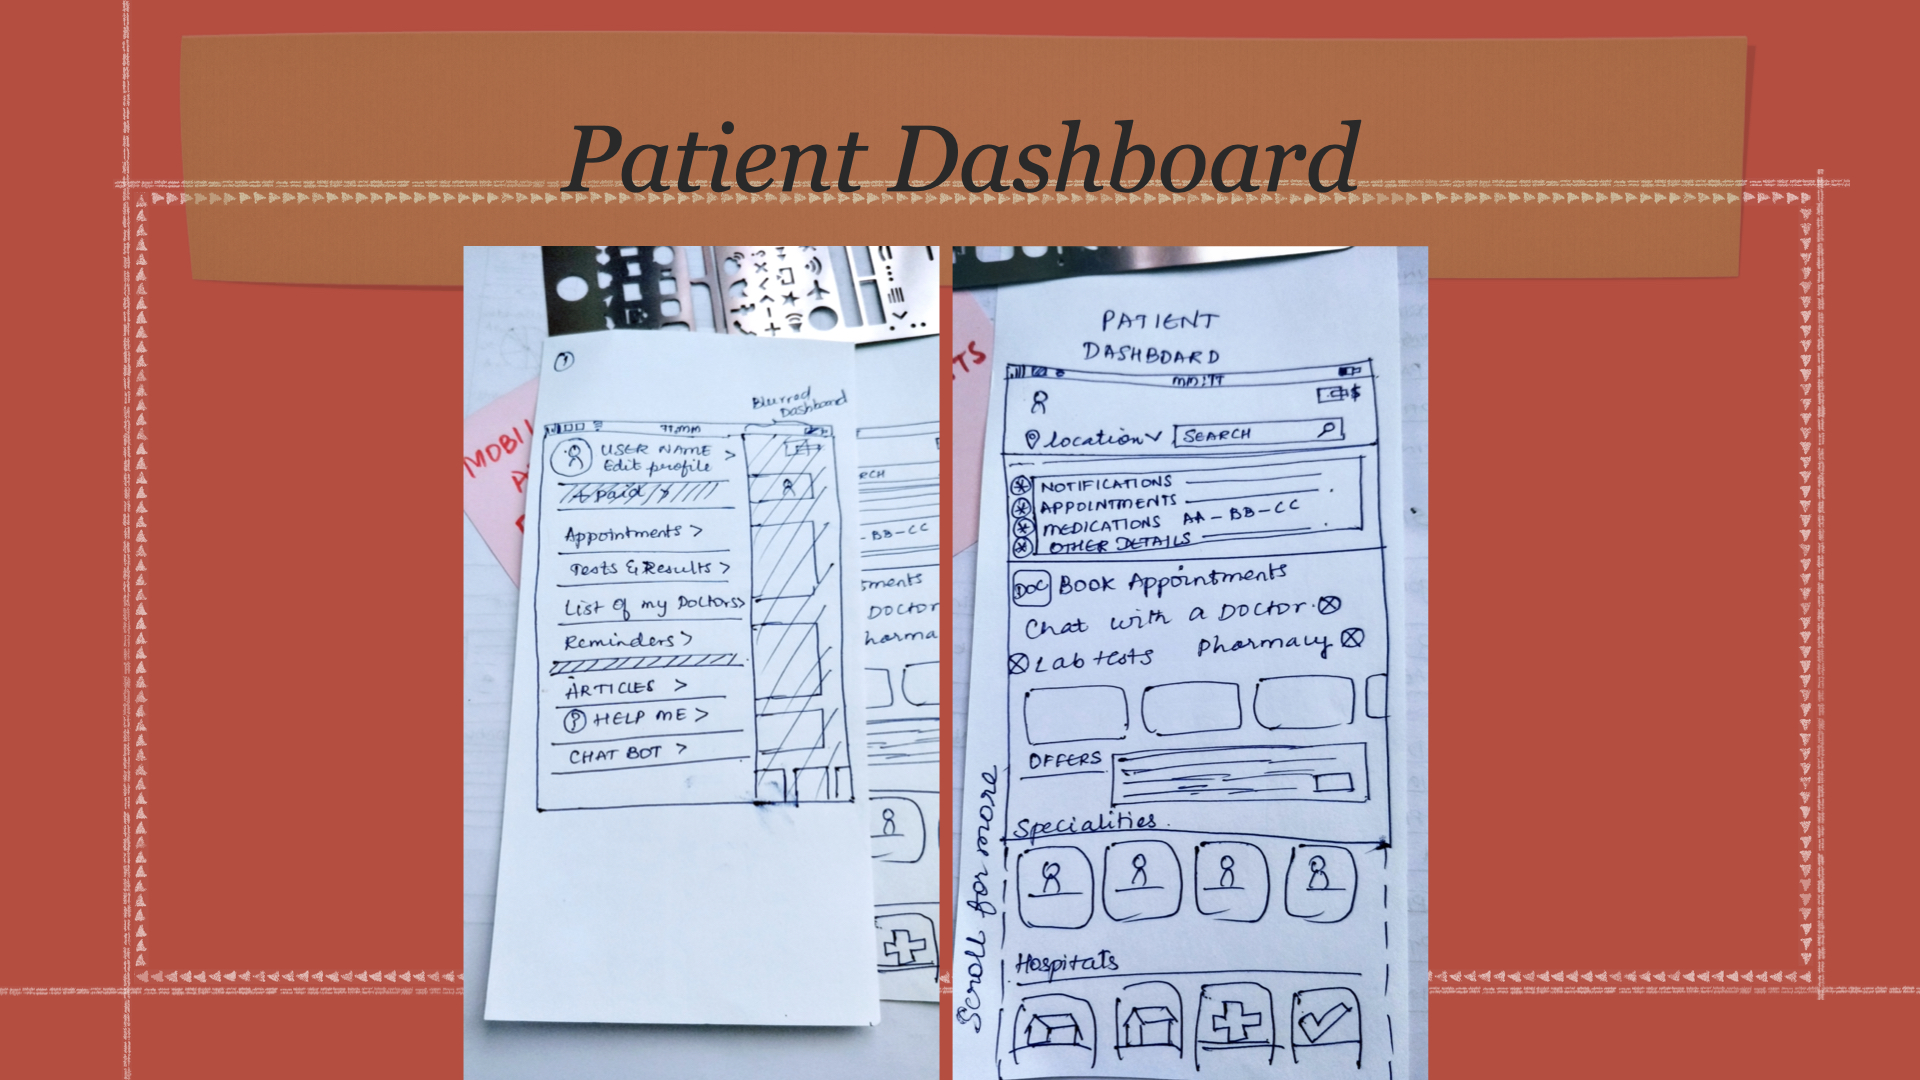 Patient Dashboard
Blurred
Dashboard
TT:MM
USER NAME >
Edit profile
Appointments >
Tests & Results >
List Of my Doctors>
Reminders >
ARTICLES >
? HELP ME >
CHAT BOT >
MOBI
RCH
- BB-CC
tments
DOCTOR
harma
TS
PATIENT
DASHBOARD
MM:TT
$
location SEARCH
NOTIFICATIONS
APPOINTMENTS
MEDICATIONS AA-BB-CC
OTHER DETAILS
DOC BOOK Appointments
Chat with a DOCTOR.
Lab tests Pharmacy
OFFERS
Specialities
Scroll for more
Hospitals